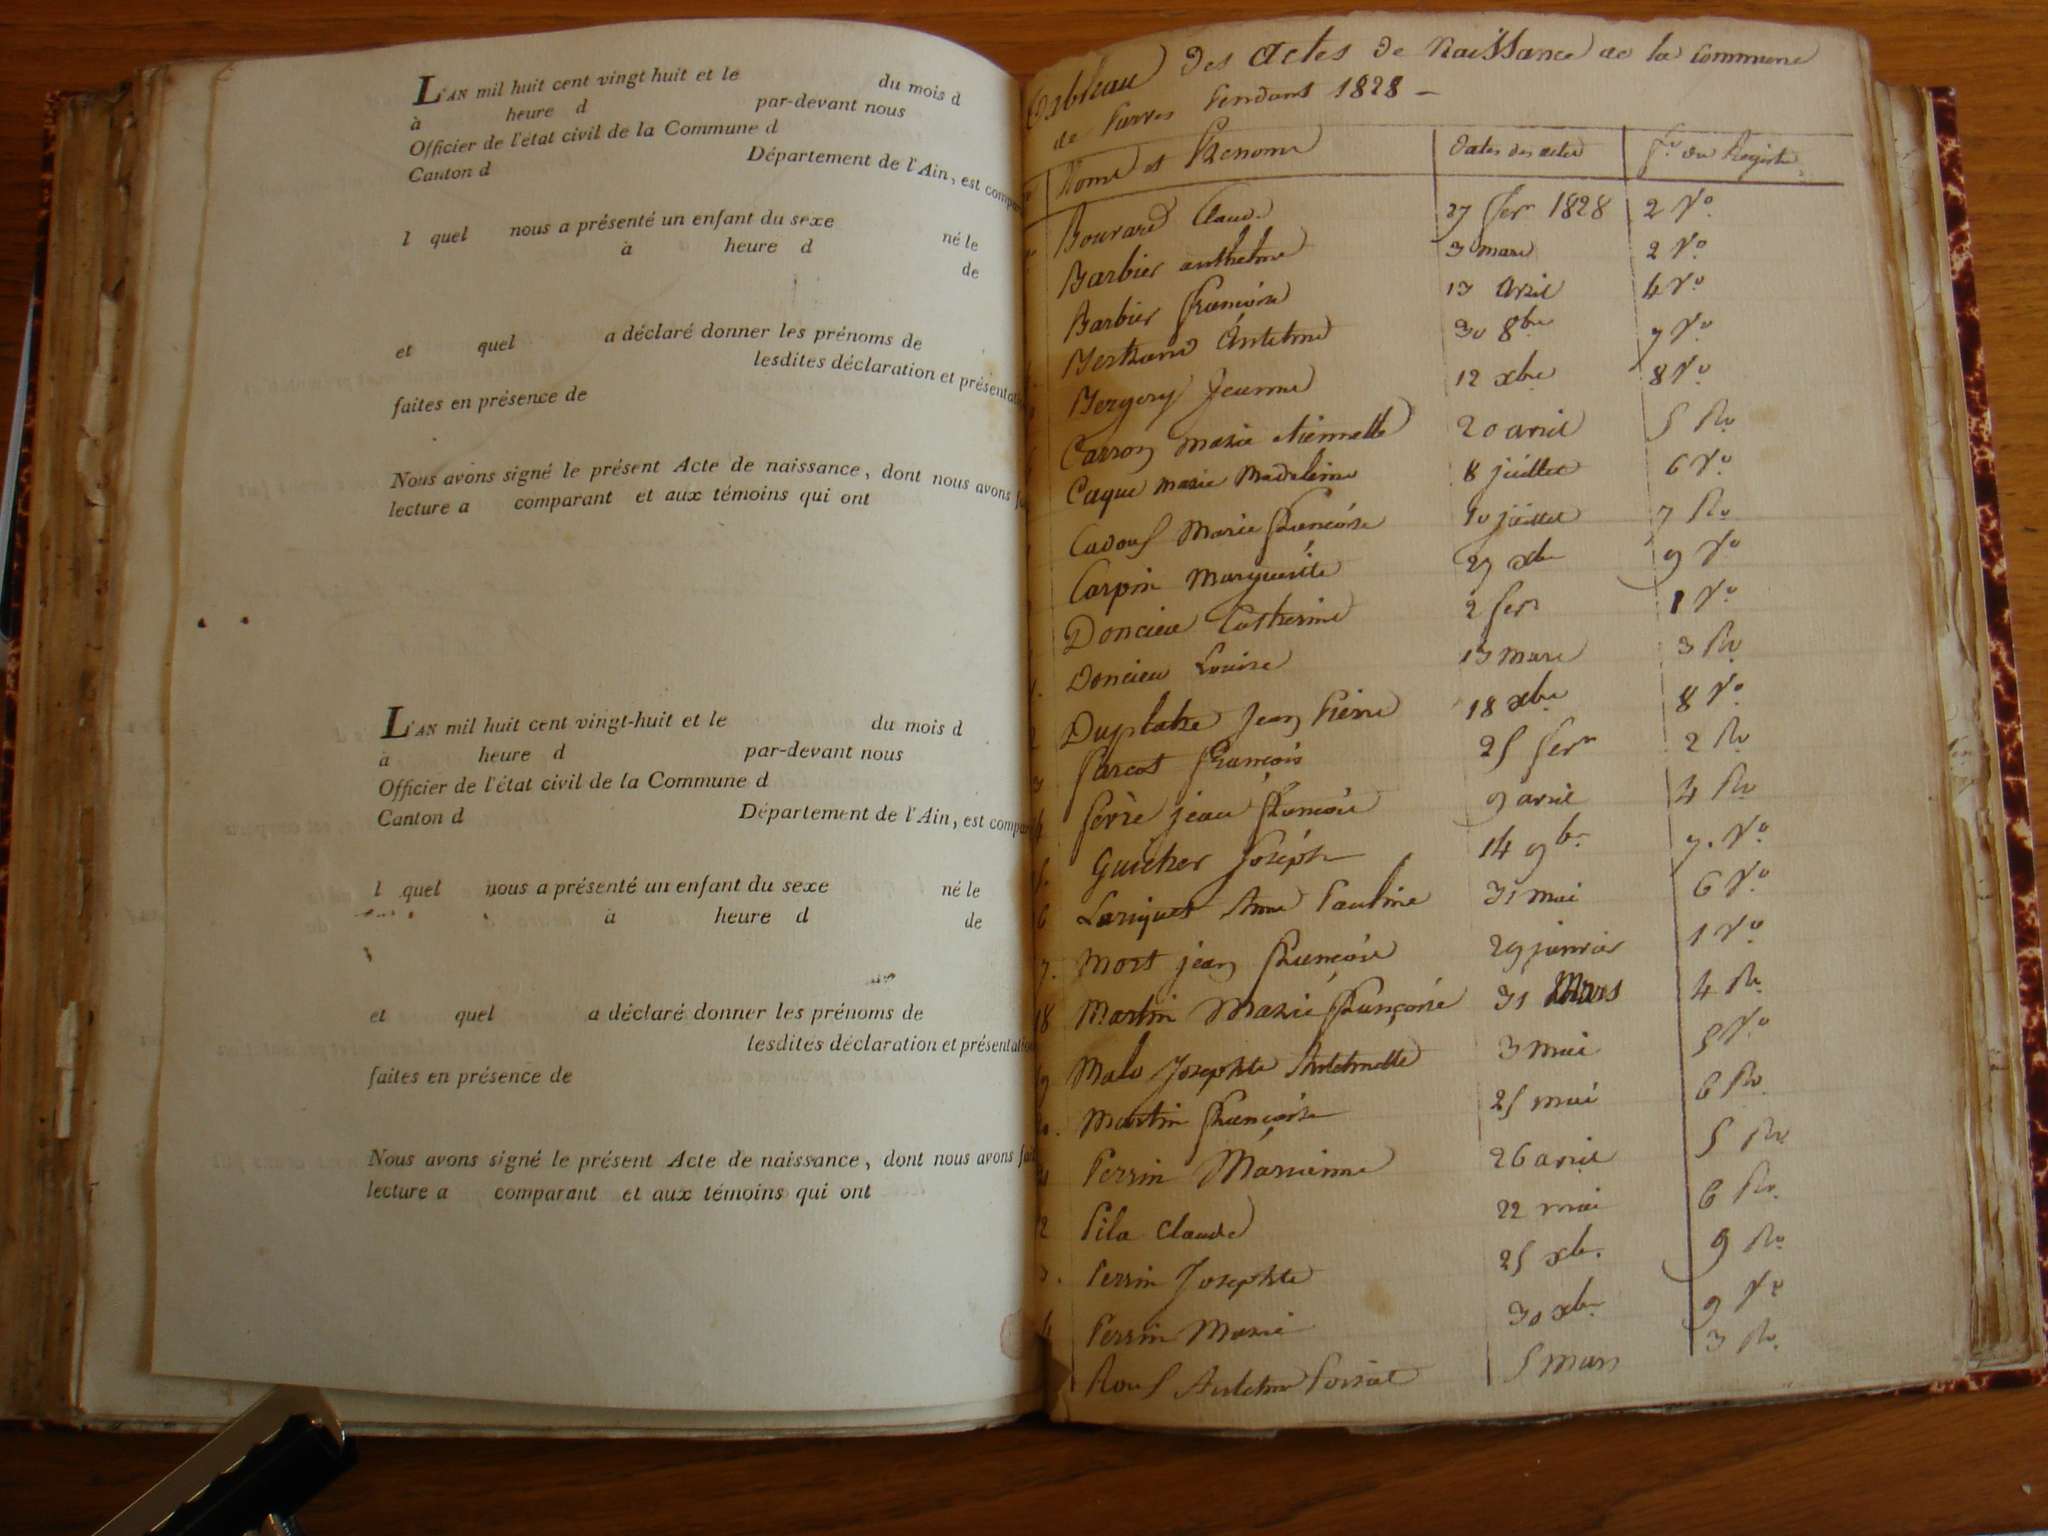 L'AN mil huit cent vingt huit et le du mois d
à heure d par-devant nous
Officier de l'état civil de la Commune d
Canton d Département de l'Ain, est compar
l quel nous a présenté un enfant du sexe né le
à heure d de
et quel a déclaré donner les prénoms de
lesdites déclaration et présentation
faites en présence de
Nous avons signé le présent Acte de naissance, dont nous avons fa
lecture a comparant et aux témoins qui ont
L'AN mil huit cent vingt-huit et le du mois d
à heure d par-devant nous
Officier de l'état civil de la Commune d
Canton d Département de l'Ain, est compar
l quel nous a présenté un enfant du sexe né le
à heure d de
et quel a déclaré donner les prénoms de
lesdites déclaration et présentation
faites en présence de
Nous avons signé le présent Acte de naissance, dont nous avons fait
lecture a comparant et aux témoins qui ont
Tableau des actes de Naissance de la commune
de Parves Pendant 1828 -
Noms et Prénoms Dates des actes fo. du Registre
Bouvard Claude 27 fer 1828 2 Vo
Barbier anthelme 3 mars 2 Vo
Barbier françoise 13 avril 4 Vo
Bertrand Antelme 30 8bre 7 Vo
Bergery Jeanne 12 xbre 8 Vo
Carron marie étiennette 20 avril 5 Ro
Caque marie Madeleine 8 juillet 6 Vo
Cadouf Marie françoise 10 juillet 7 Ro
Carpin Marguerite 27 xbr 9 Vo
Doncieu Catherine 2 fer 1 Vo
Doncieu Louise 13 mars 3 Ro
Duplatre Jean Pierre 18 xbre 8 Vo
farcot françois 25 fer 2 Ro
ferre jean françois 9 avril 4 Ro
Guicher Joseph 14 9br 7. Vo
Lariquet Anne Pauline 31 mai 6 Vo
7. Mort jean françois 29 janvier 1 Vo
18 Martin Marie françoise 31 Mars 4 Ro
Malo Josephte Antelmette 3 mai 5 Vo
Martin françoise 25 mai 6 Ro
Perrin Marianne 26 avril 5 Ro
2 Pila Claude 22 mai 6 Ro
Perrin Josephte 25 xbr. 9 Ro
4 Perrin Marie 30 xbr. 9 Vo
Rouf Antelme 5 mars 3 Ro